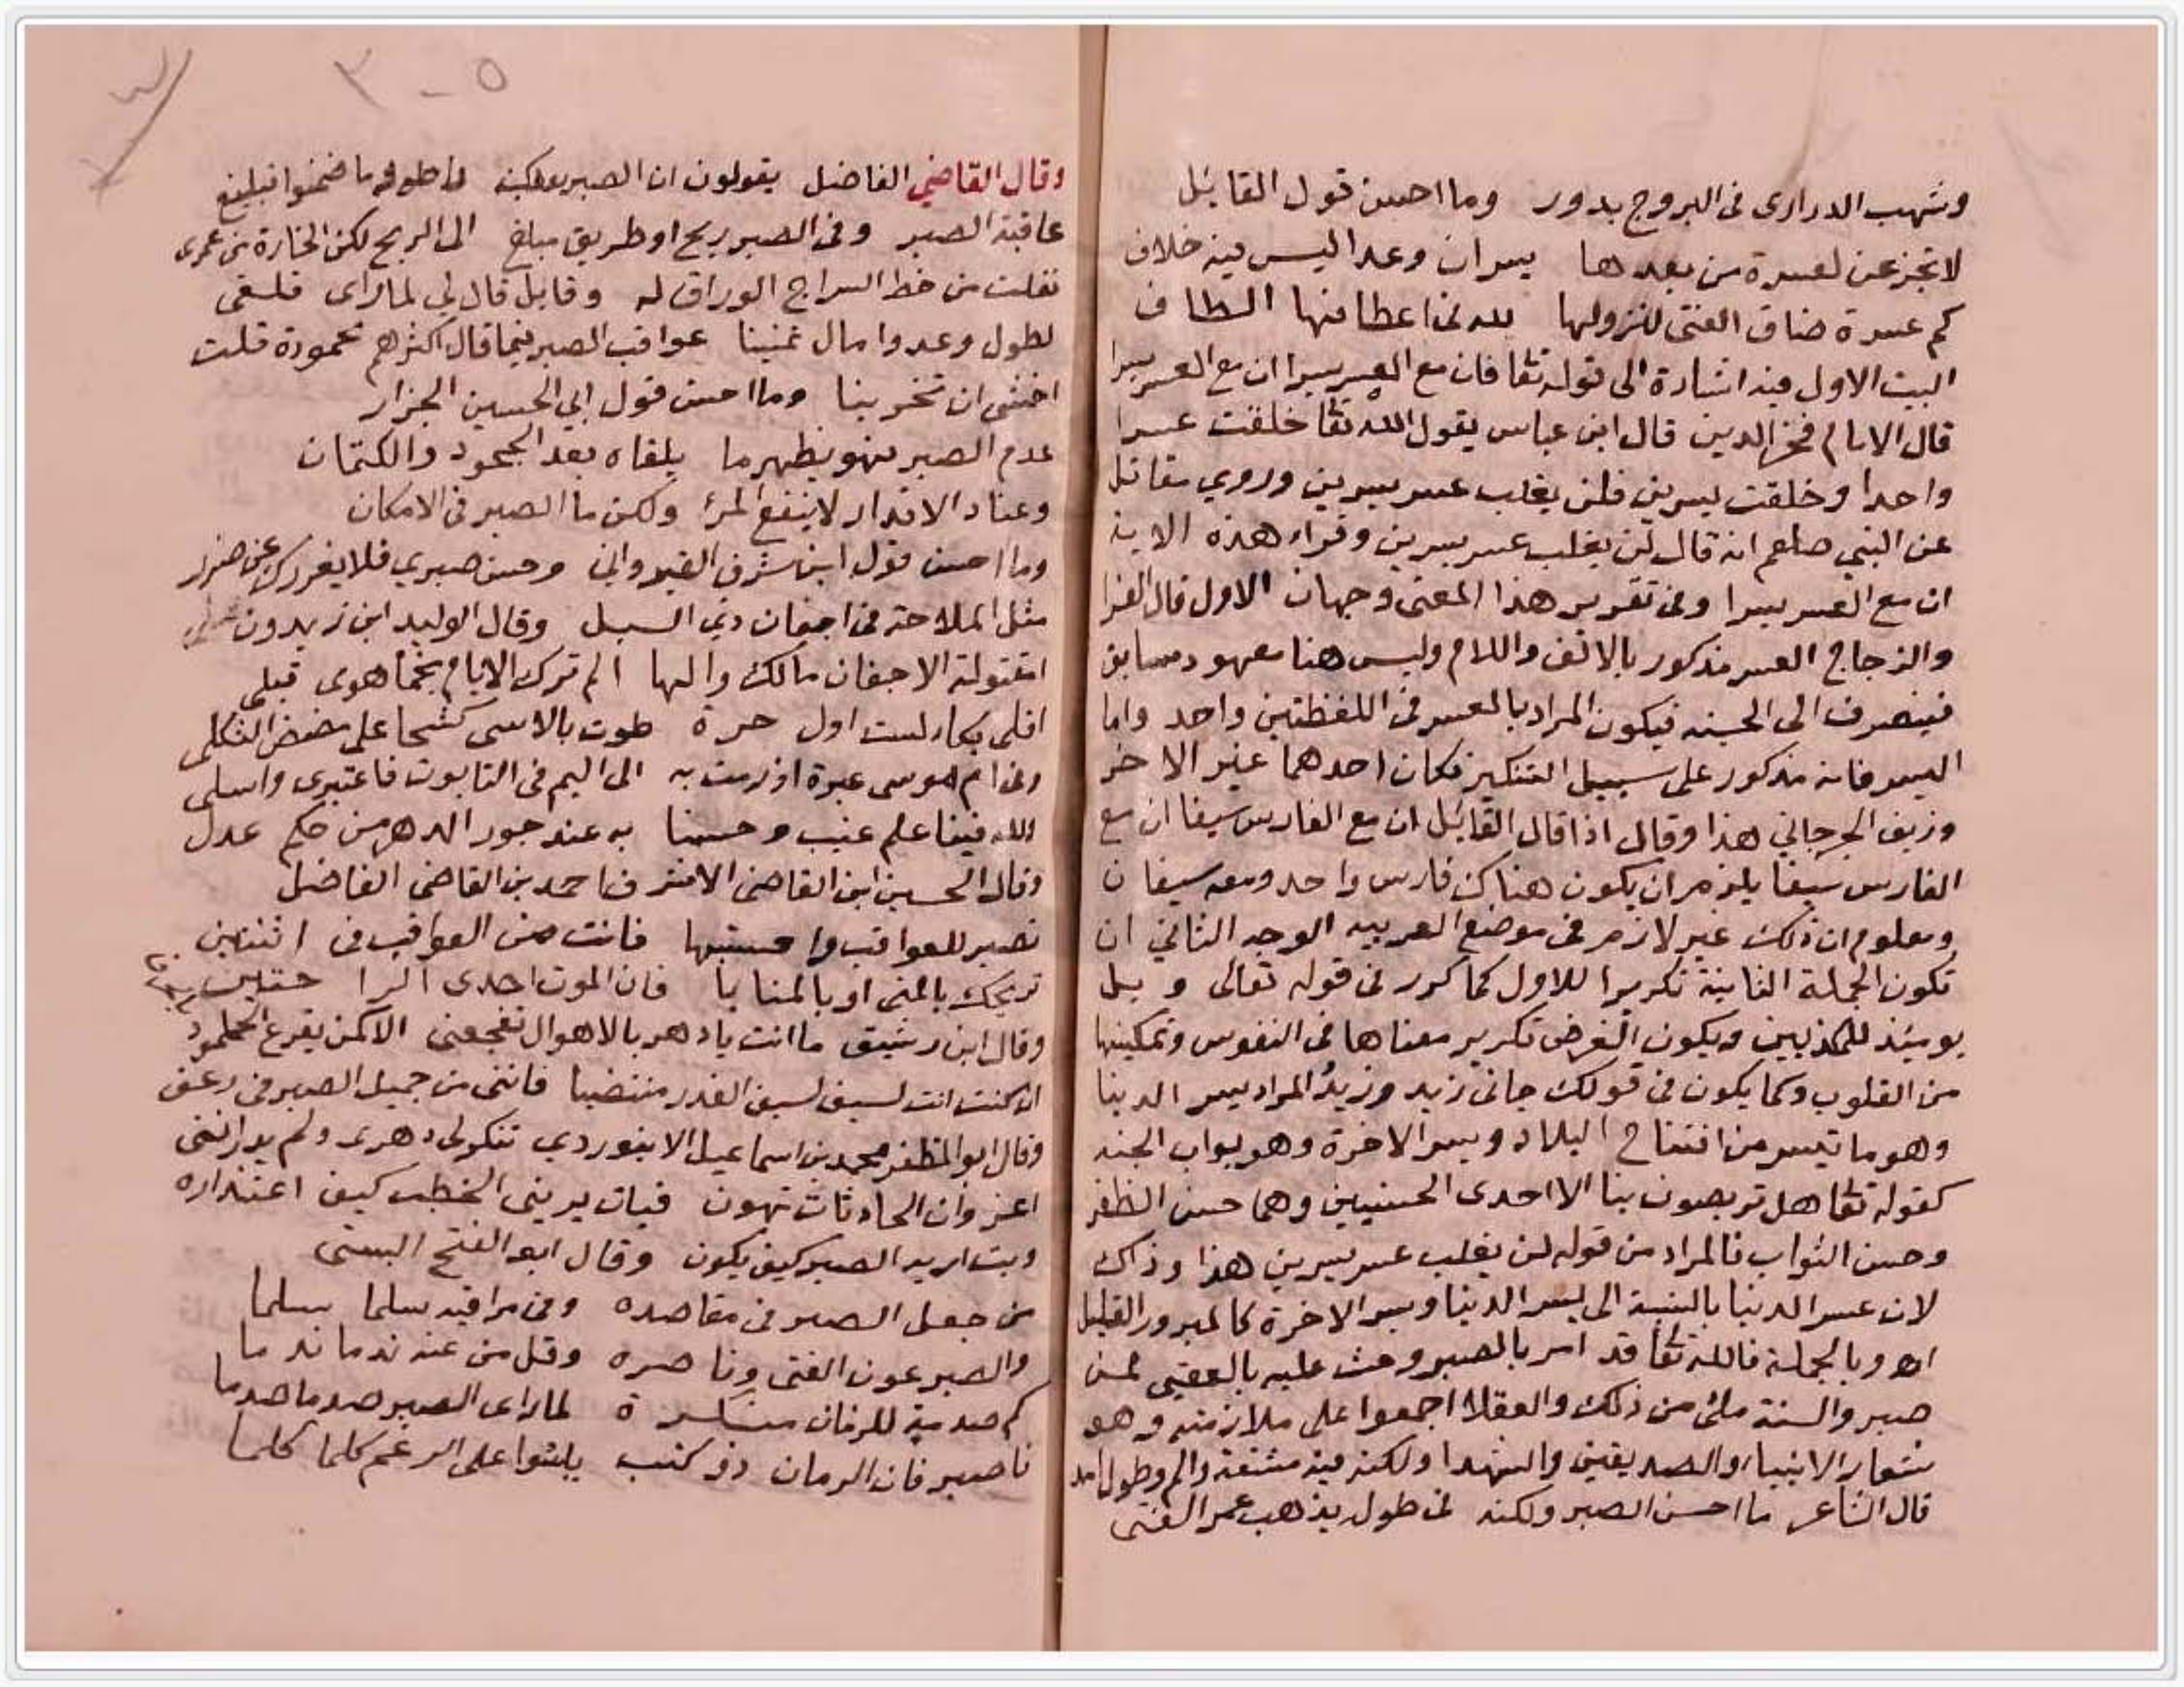 وشهب الدراري في البروج بدور وما احسن قول القائل
لا تجزعن لعسرة من بعدها يسران وعدا ليس فيه خلاف
كم عسرة ضاق الفتى لنزولها لله في اعطافها الطاف
البيت الاول فيه اشارة الى قوله تعا فان مع العسر يسرا ان مع العسر يسرا
قال الامام فخر الدين قال ابن عباس يقول الله تعا خلقت عسرا
واحدا وخلقت يسرين فلن يغلب عسر يسرين وروي مقاتل
عن النبي صلعم انه قال لن يغلب عسر يسرين وقراء هذه الاية
ان مع العسر يسرا وفي تقرير هذا المعنى وجهان الاول قال الفرا
والزجاج العسر مذكور بالالف واللام وليس هنا معهود سابق
فينصرف الى الجنس فيكون المراد بالعسر في اللفظتين واحد واما
اليسر فانه مذكور على سبيل التنكير فكان احدهما غير الاخر
وزيف الجرجاني هذا وقال اذا قال القائل ان مع الفارس سيفا ان مع
الفارس سيفا يلزم ان يكون هناك فارس واحد ومعه سيفان
ومعلوم ان ذلك غير لازم في موضع العربيه الوجه الثاني ان
تكون الجملة الثانية تكريرا للاول كما كرر في قوله تعالى ويل
يومئذ للمكذبين ويكون الغرض تكرير معناها في النفوس وتمكينها
من القلوب وكما يكون في قولك جانى زيد وزيدُ المراد يسر الدنيا
وهو ما تيسر من افتتاح البلاد ويسر الاخرة وهو ثواب الجنه
كقوله تعا هل تربصون بنا الا احدى الحسنيين وهما حسن الظفر
وحسن الثواب فالمراد من قوله لن يغلب عسر يسرين هذا وذاك
لان عسر الدنيا بالنسبة الى يسر الدنيا ويسر الاخرة كالمبرور القليل
اهـ وبالجملة فالله تعا قد امر بالصبر وحث عليه بالعقبى لمن
صبر والسنة ملئ من ذلك والعقلا اجمعوا على ملازمته وهو
شعار الانبياء والصديقين والشهدا ولكنه فيه مشقة والم وطول
قال الشاعر ما احسن الصبر ولكنه في طول يذهب عمر الفتى
٣ - ٥
وقال القاضي الفاضل يقولون ان الصبر يعقبه ما ضمنوا تبليغ
عاقبة الصبر وفي الصبر ربح او طريق مبلغ الى الربح لكن الخسارة من عمرى
نقلت من خط السراج الوراق له وقايل قال لي لما راى قلقى
لطول وعد وامال تمنينا عواقب الصبر فيما قال اكثرهم محمودة قلت
اخشى ان تخرينا وما احسن قول ابي الحسين الجزار
عدم الصبر فهو يظهر ما يلقاه بعد الجحود والكتمان
وعناد الاقدار لا ينفع المرء ولكن ما الصبر في الامكان
وما احسن قول ابن شرف القيرواني وحسن صبري فلا يغررك عن ضرر
مثل الملاحة في اجفان ذي السبل وقال الوليد ابن زيدون
امقتولة الاجفان مالك والها الم ترك الايام نجما هوى قبلى
اقلى بكا لست اول حرة طوت بالاسى كشحا على مضض الثكلى
وفي ام موسى عبرة اذ رمت به الى اليم في التابوت فاعتبرى واسلى
الله فينا علم غيب وحسبنا به عند جور الدهر من حكم عدل
وقال الحسين ابن القاضى الاشرف احمد بن القاضى الفاضل
تصبر للعواقب واحتسبها فانت من العواقب في اثنتين
تريحك بالمنى او بالمنايا فان الموت احدى الراحتين
وقال ابن رشيق ما انت يا دهر بالاهوال تفجعنى الا كمن يقرع الجلمود
ان كنت انت لسيف الغدر منتضيا فاننى من جميل الصبر في زغف
وقال ابو المظفر محمد بن اسماعيل الابيوردي تنكر لي دهرى ولم يدر اننى
اعز وان الحادثات تهون فبات يريني الخطب كيف اعتداره
وبت اريه الصبر كيف يكون وقال ابو الفتح البستى
من جعل الصبر في مقاصده وفي مراقيه سلما سلما
والصبر عون الفتى وناصره وقل من عنه ندما ندما
كم صدمة للزمان منكرة لما راى الصبر صدما صدما
فاصبر فان الزمان ذو كتب على الرغم كلما كلما